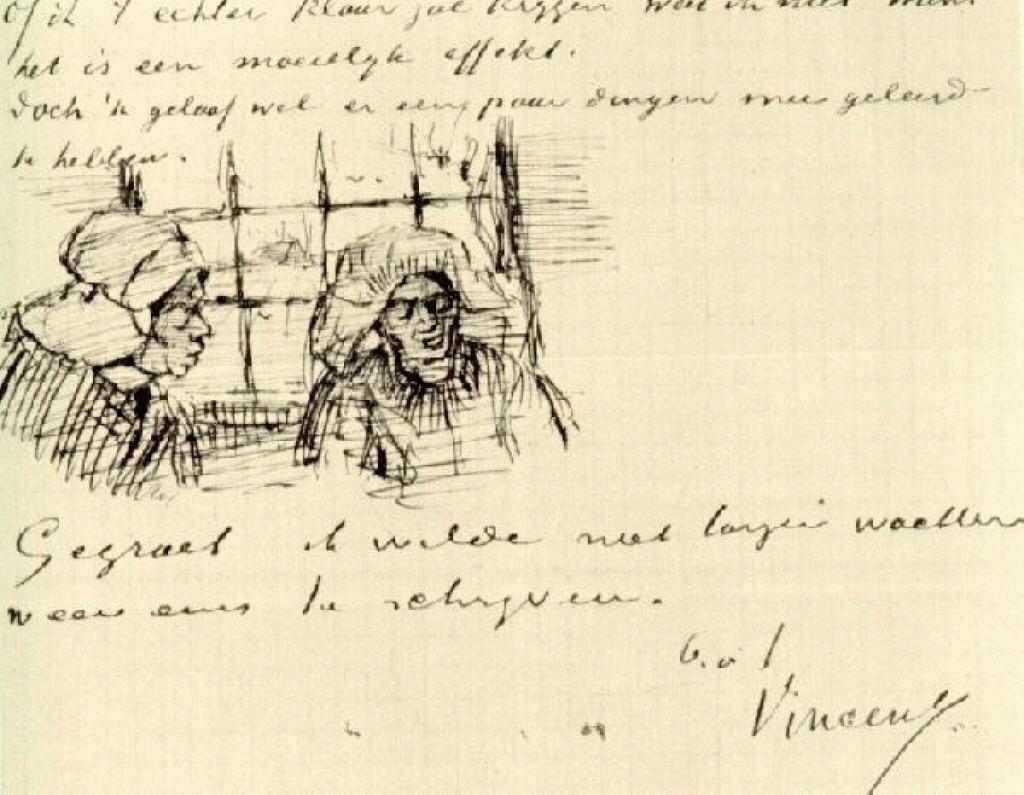 Of ik 't echter klaar zal krijgen weet ik niet want
het is een moeielijk effekt.
Doch 'k geloof wel er een paar dingen mee geleerd
te hebben.
Gegroet ik wilde niet langer wachten
weer eens te schrijven.
b.à t.
Vincent